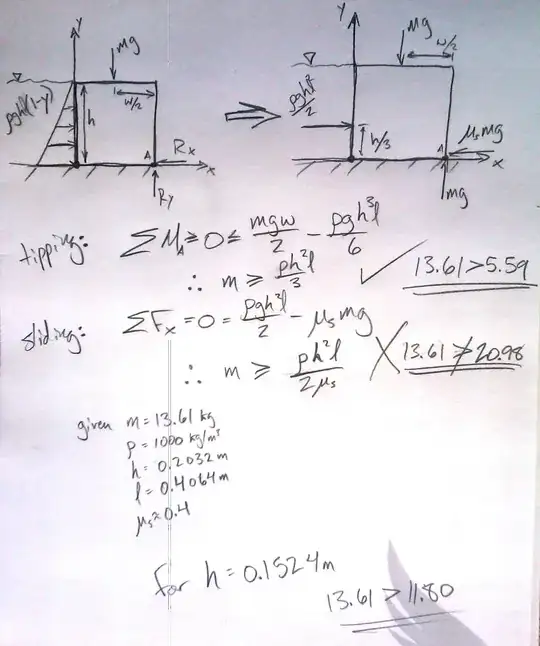 y
mg
w/2
h
ρghl(1-y)
A
Rx
x
Ry
y
mg
w/2
ρgh²l/2
h/3
A
μs mg
x
mg
tipping: ΣM_A ≥ 0 ≤ mgw/2 - ρgh³l/6
∴ m ≥ ρh²l/3 ✓ 13.61 > 5.59
sliding: ΣFx = 0 = ρgh²l/2 - μs mg
∴ m ≥ ρh²l/2μs X 13.61 ≯ 20.98
given m = 13.61 kg
ρ = 1000 kg/m³
h = 0.2032 m
l = 0.4064 m
μs ≈ 0.4
for h = 0.1524 m
13.61 > 11.80